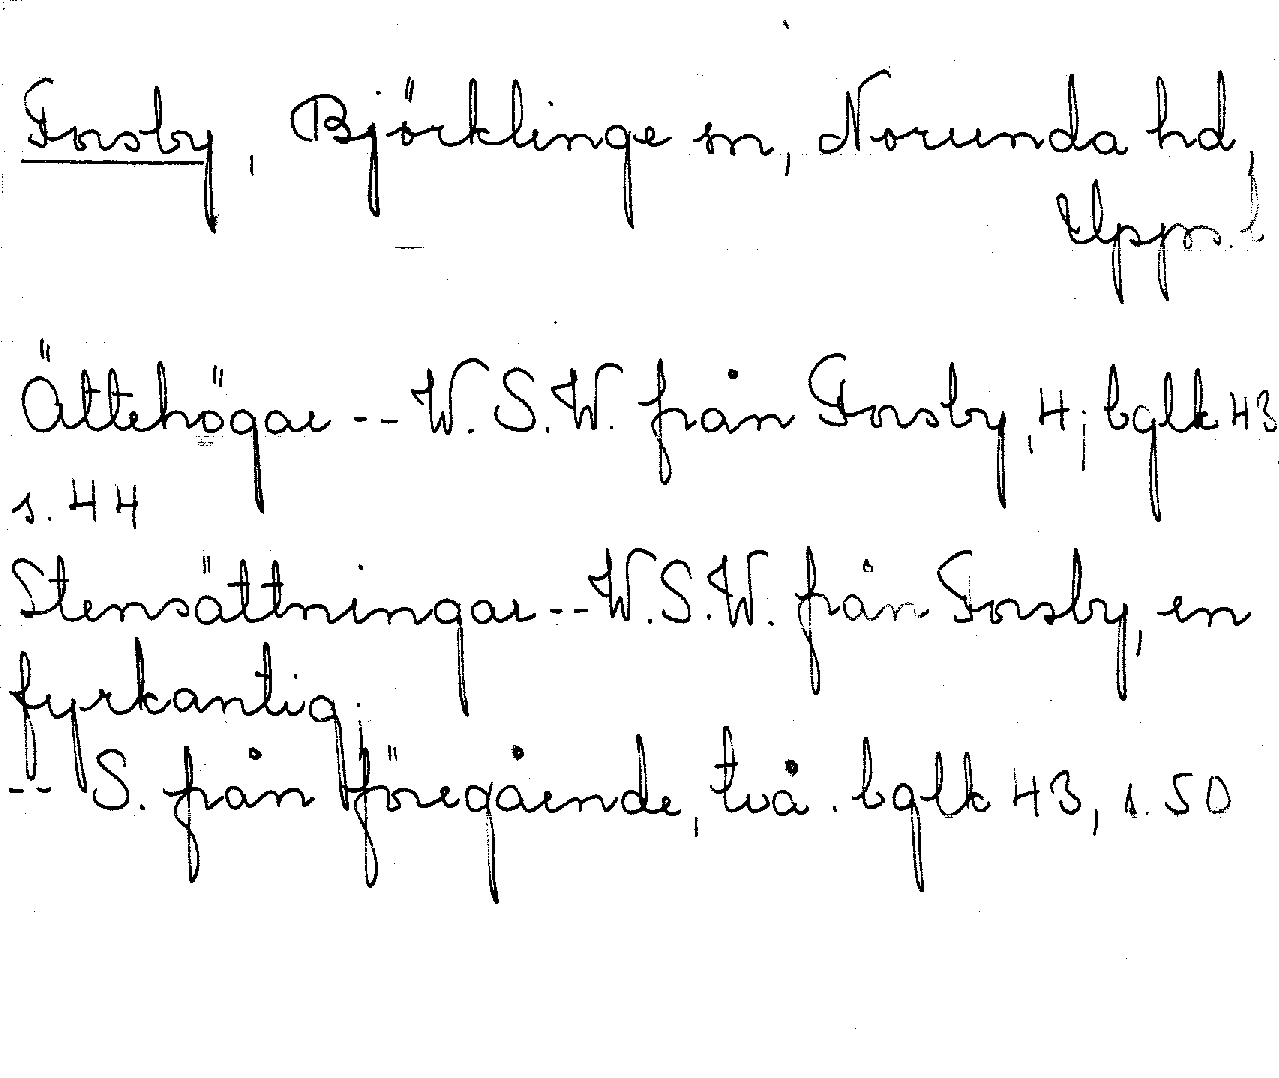 Forsby, Björklinge sn, Norunda hd,
Upps. l
Ättehögar -- W.S.W. från Forsby, 4; bglk 43
s. 44
Stensättningar -- W.S.W. från Forsby, en
fyrkantig;
-- S. från föregående, två. bglk 43, s. 50